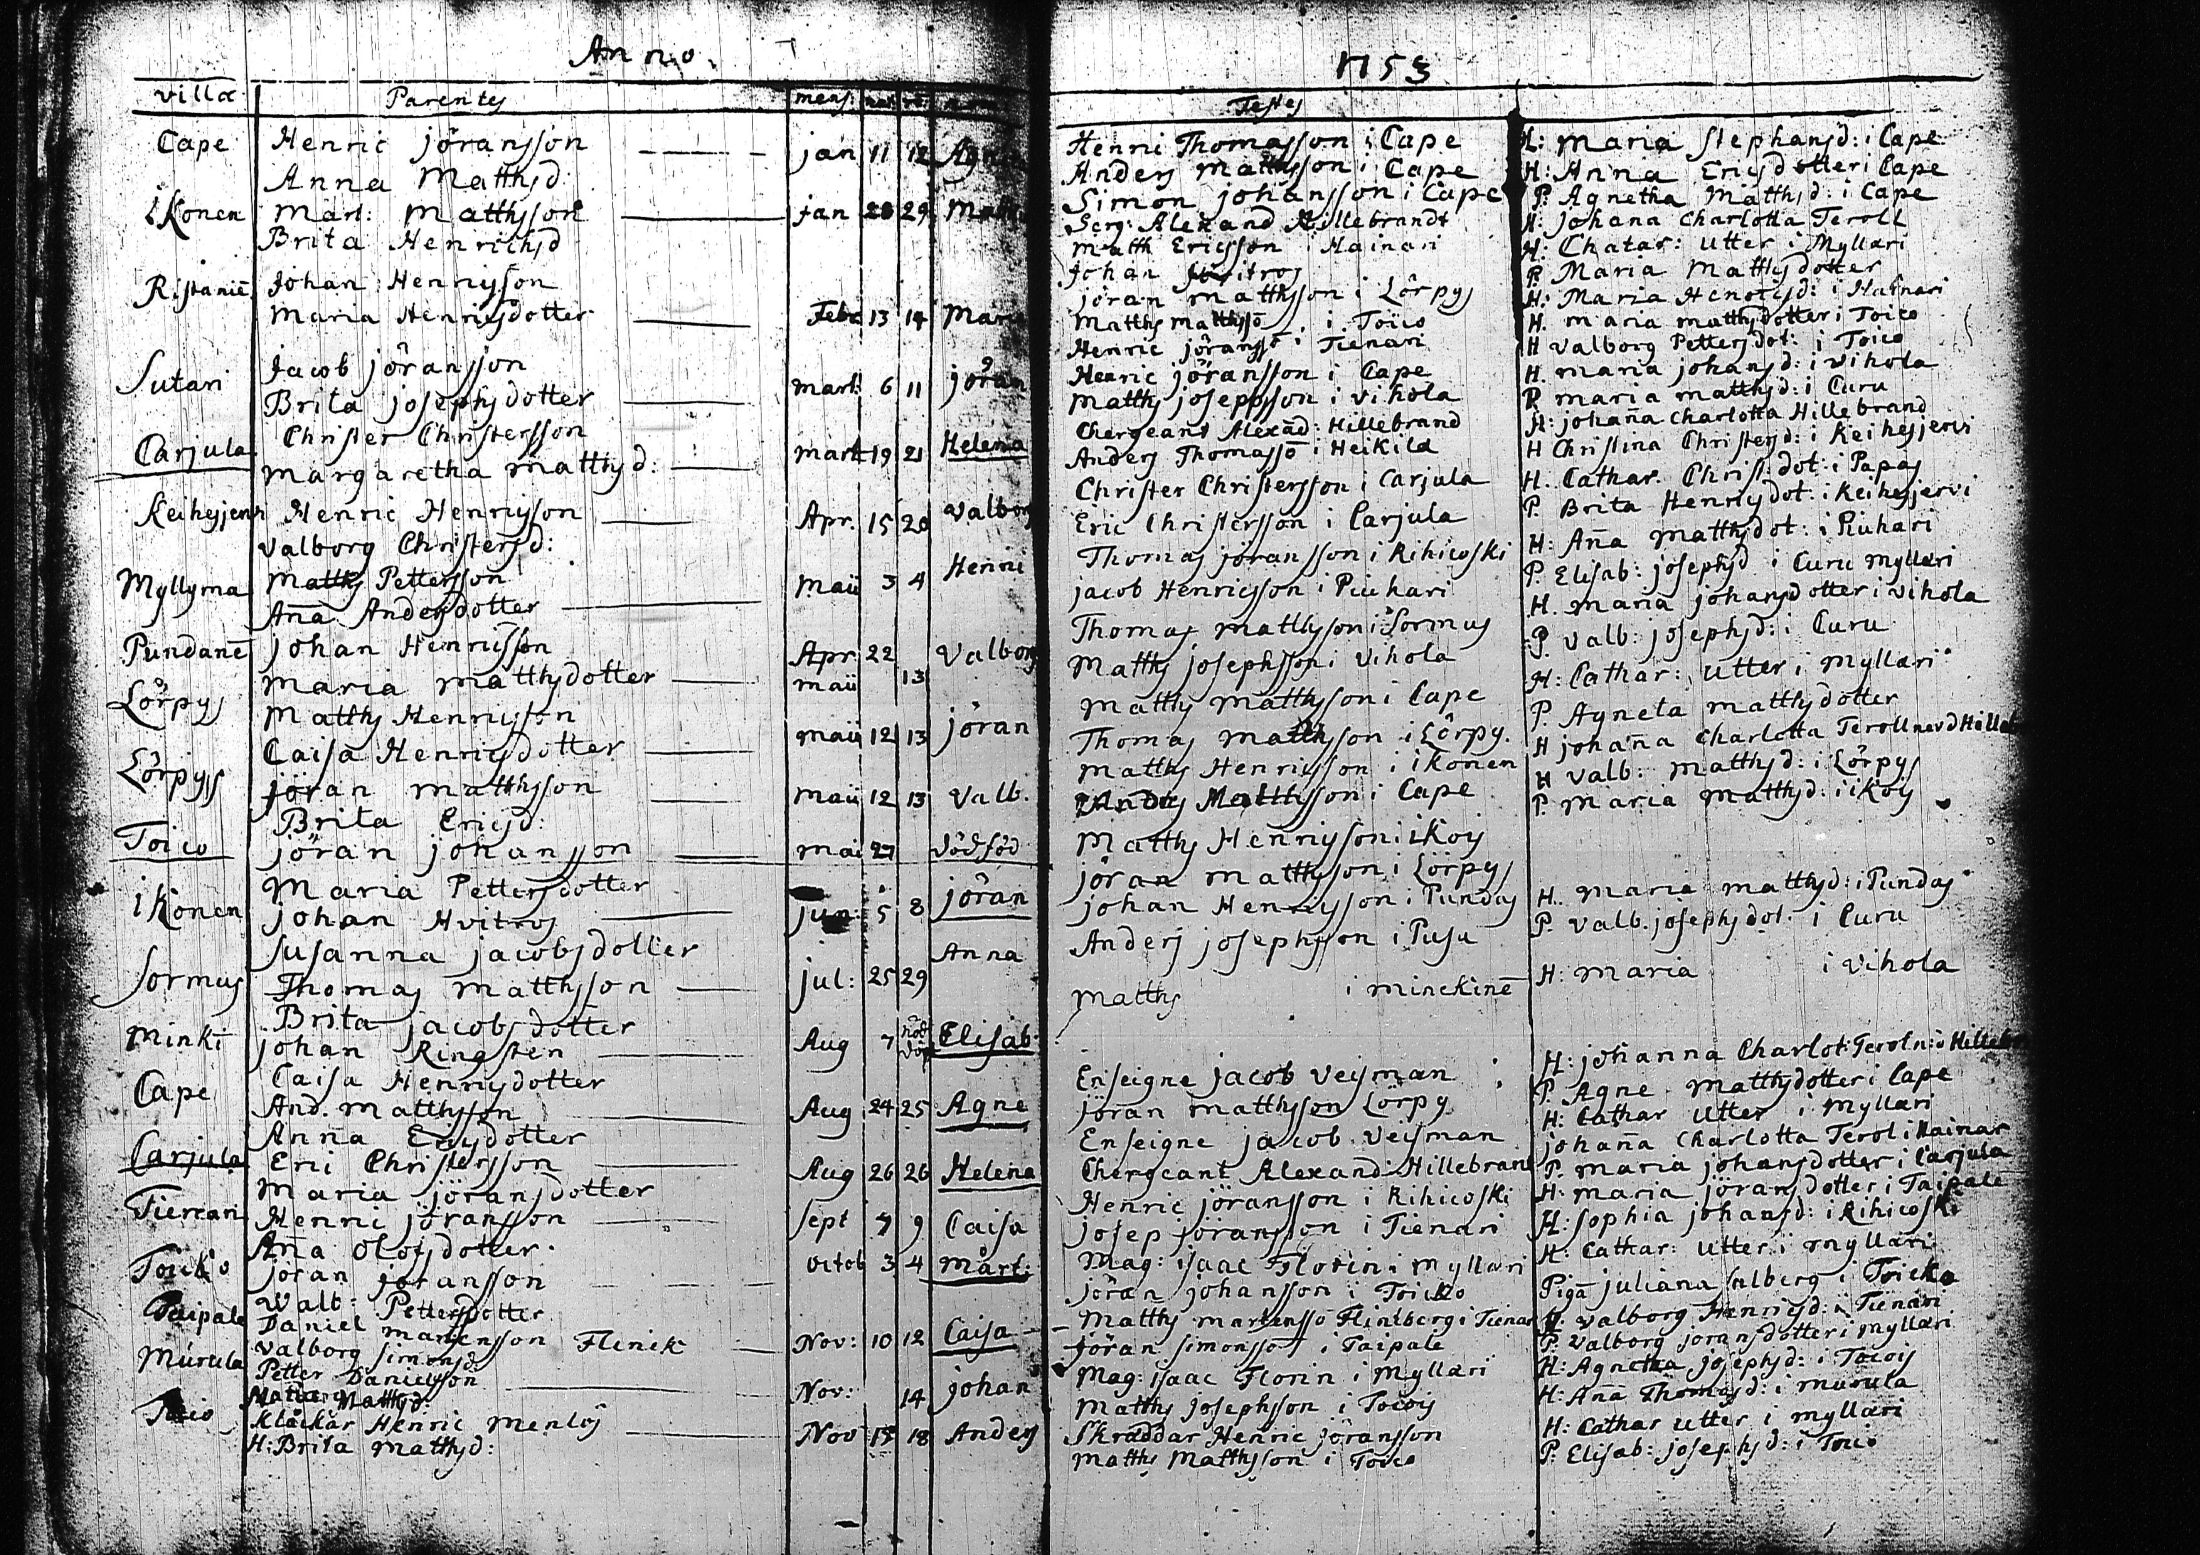 Anno.
1753
villæ Parentes mens: Testes
Cape Henric jöransson jan 11 12 Agne
Anna Matthsd:
ikonen Mart: Matthsson jan 28 29
Brita Henrichsd
Ristanie Johan Henricsson
Maria Henricsdotter Febr 13 14 Maria
Sutari Jacob jöransson
Brita josephsdotter mart: 6 11 jöran
Carjula Christer Christersson
margaretha matthsd: mart 19 21 Helena
Keihesjervi Henric Henricsson Apr. 15 20 Valborg
Valborg Christersd:
Myllyma Matths Pettersson maii 3 4 Henric
Aña Andersdotter
Pundanē johan Henricsson Apr 22 Valborg
maria matthsdotter maii 13
Lörpys Matths Henricsson
Caisa Henricsdotter maii 12 13 jöran
Lörpys jöran matthsson maii 12 13 Valb.
Brita Ericsd:
Toico jöran johansson mai 27 dödföd
Maria Pettersdotter
ikonen johan Hvitros jun: 5 8 jöran
Susanna jacobsdotter
Sormus Thomas matthsson jul: 25 29 Anna
Brita jacobsdotter
Minki johan Ringsten Aug 7 nöd döpt Elisab:
Caisa Henricsdotter
Cape And. matthsson Aug 24 25 Agne
Anna Ericsdotter
Carjula Eric Christersson Aug 26 26 Helena
Maria jöransdotter
Tienari Henric jöransson Sept 7 9 Caisa
Aña Olofsdotter.
Toicko jöran johansson octob 3 4 mårt:
Valb: Pettersdotter
Taipale Daniel martensson Flenik Nov: 10 12 Caisa
Valborg Simonsd:
Murula Petter Danielsson Nov: 14 johan
Maria Matthsd:
Toico Klåckar Henric Menlös Nov 15 18 Anders
H: Brita Matthsd:
Henric Thomasson i Cape H: Maria Stephansd: i Cape
Anders Matthsson i Cape H: Anna Ericsdotter i Cape
Simon johansson i Cape P: Agnetha Matthsd: i Cape
Serg: Alexand Hillebrandt H: johana Charlotta Teroll
Matth Ericsson i Hainari H: Chatar: Utter i Myllæri
Johan Hvitros P: Maria Matthsdotter
jöran matthsson i Lörpys H: Maria Henricsd: i Hainari
Matths matthssō i Toico H. maria matthsdotter i Toico
Henric jöranssō i Tienari H Valborg Pettersdot: i Toico
Henric jöransson i Cape H. maria johansd: i Vihola
Matths josephsson i Vihola P maria matthsd: i Curu
Chergeant Alexād: Hillebrand H: johaña Charlotta Hillebrand
Anders Thomassō i Heikilä H Christina Christersd: i Keihesjervi
Christer Christersson i Carjula H. Cathar. Christ:dot: i Papas
Eric Christersson i Carjula P. Brita Henricsdot: i Keihesjervi
Thomas jöransson i Rihicoski H: Aña matthsdot: i Piuhari
jacob Henricsson i Piuhari P. Elisab: josephsd i Curu myllæri
Thomas matthsson i Sormus H. maria johansdotter i Vihola
Matths josephsson i Vihola P. Valb: josephsd: i Curu
Matths matthsson i Cape H: Cathar: Utter i myllæri
Thomas matthsson i Lörpy. P. Agneta matthsdotter
Matths Henricsson i ikonen H johaña Charlotta Teroll
Anders Matthsson i Cape H Valb: Matthsd: i Lörpys
Matths Henricsson i ikois P. maria matthsd: i ikois
jöran matthsson i Lörpys
johan Henricsson i Pundas H. maria matthsd: i Pundas
Anders josephsson i Pusu P. Valb. josephsdot. i Curu
matths i minckinē H: maria i Vihola
Enseigne jacob Veisman H: johanna Charlot: Terol
jöran matthsson Lörpy P. Agne matthsdotter i Cape
Enseigne jacob Veisman H: Cathar Utter i myllæri
Chergeant Alexand: Hillebrand johaña Charlotta Terol i Hainar
Henric jöransson i Rihicoski P. maria johansdotter i Carjula
josep jöransson i Tienari H: maria jöransdotter i Taipale
Mag: isaac Florin i myllæri H: Sophia johansd: i Rihicoski
jöran johansson i Toicko H: Cathar: Utter i myllæri
Matths martenssō Flintberg i Tienari Piga juliana Salberg i Toicko
jöran simonsson i Taipale H. Valborg Henricsd: i Tienari
Mag: isaac Florin i Myllæri P. Valborg jöransdotter i myllæri
Matths josephsson i Tocois H: Agnetta josephsd: i Tocois
Skräddar Henric jöransson H: Aña Thomasd: i murula
Matths Matthsson i Toico H: Cathar Utter i myllæri
P. Elisab: josephsd: i Toico